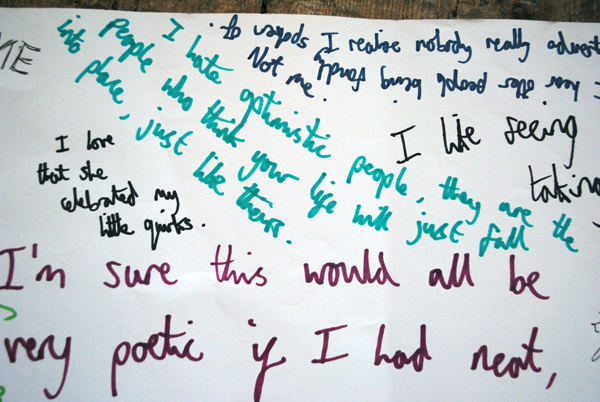 ME
I realise nobody really
hear other people being fondly
spoken of.
Not me.
I hate optimistic people, they are the
people who think your life will just fall
into place, just like theirs.
I like seeing
taking
I love
that she
celebrated my
little quirks.
I'm sure this would all be
very poetic if I had neat,